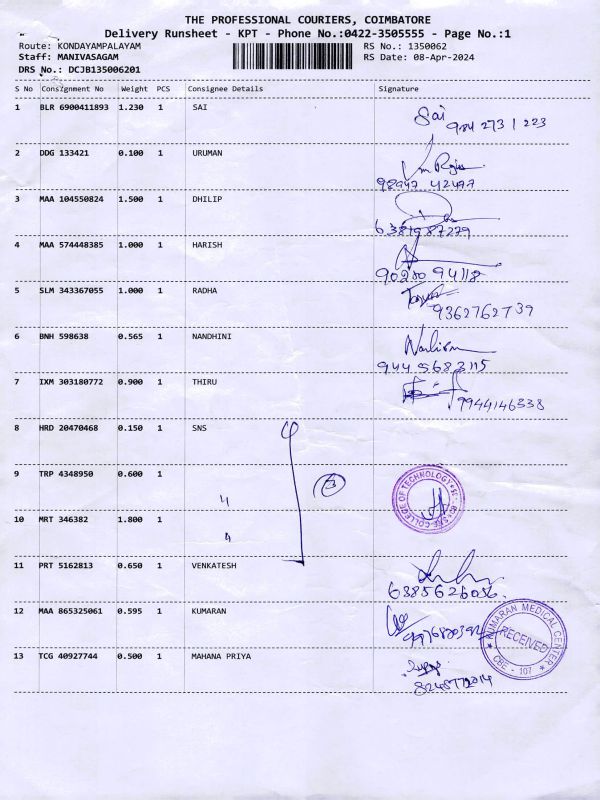 THE PROFESSIONAL COURIERS, COIMBATORE
Delivery Runsheet - KPT - Phone No.:0422-3505555 - Page No.:1
Route: KONDAYAMPALAYAM RS No.: 1350062
Staff: MANIVASAGAM RS Date: 08-Apr-2024
DRS No.: DCJB135006201
S No Consignment No Weight PCS Consignee Details Signature
1 BLR 6900411893 1.230 1 SAI Sai
984 2731 223
2 DDG 133421 0.100 1 URUMAN
98947 42477
3 MAA 104550824 1.500 1 DHILIP
6381987279
4 MAA 574448385 1.000 1 HARISH
90280 94118
5 SLM 343367055 1.000 1 RADHA
9362762739
6 BNH 598638 0.565 1 NANDHINI
9445683115
7 IXM 303180772 0.900 1 THIRU
9944146338
8 HRD 20470468 0.150 1 SNS
9 TRP 4348950 0.600 1 " 3
10 MRT 346382 1.800 1 "
COLLEGE OF TECHNOLOGY
11 PRT 5162813 0.650 1 VENKATESH
6385626036
12 MAA 865325061 0.595 1 KUMARAN
KUMARAN MEDICAL CENTER
RECEIVED
CBE - 107
13 TCG 40927744 0.500 1 MAHANA PRIYA